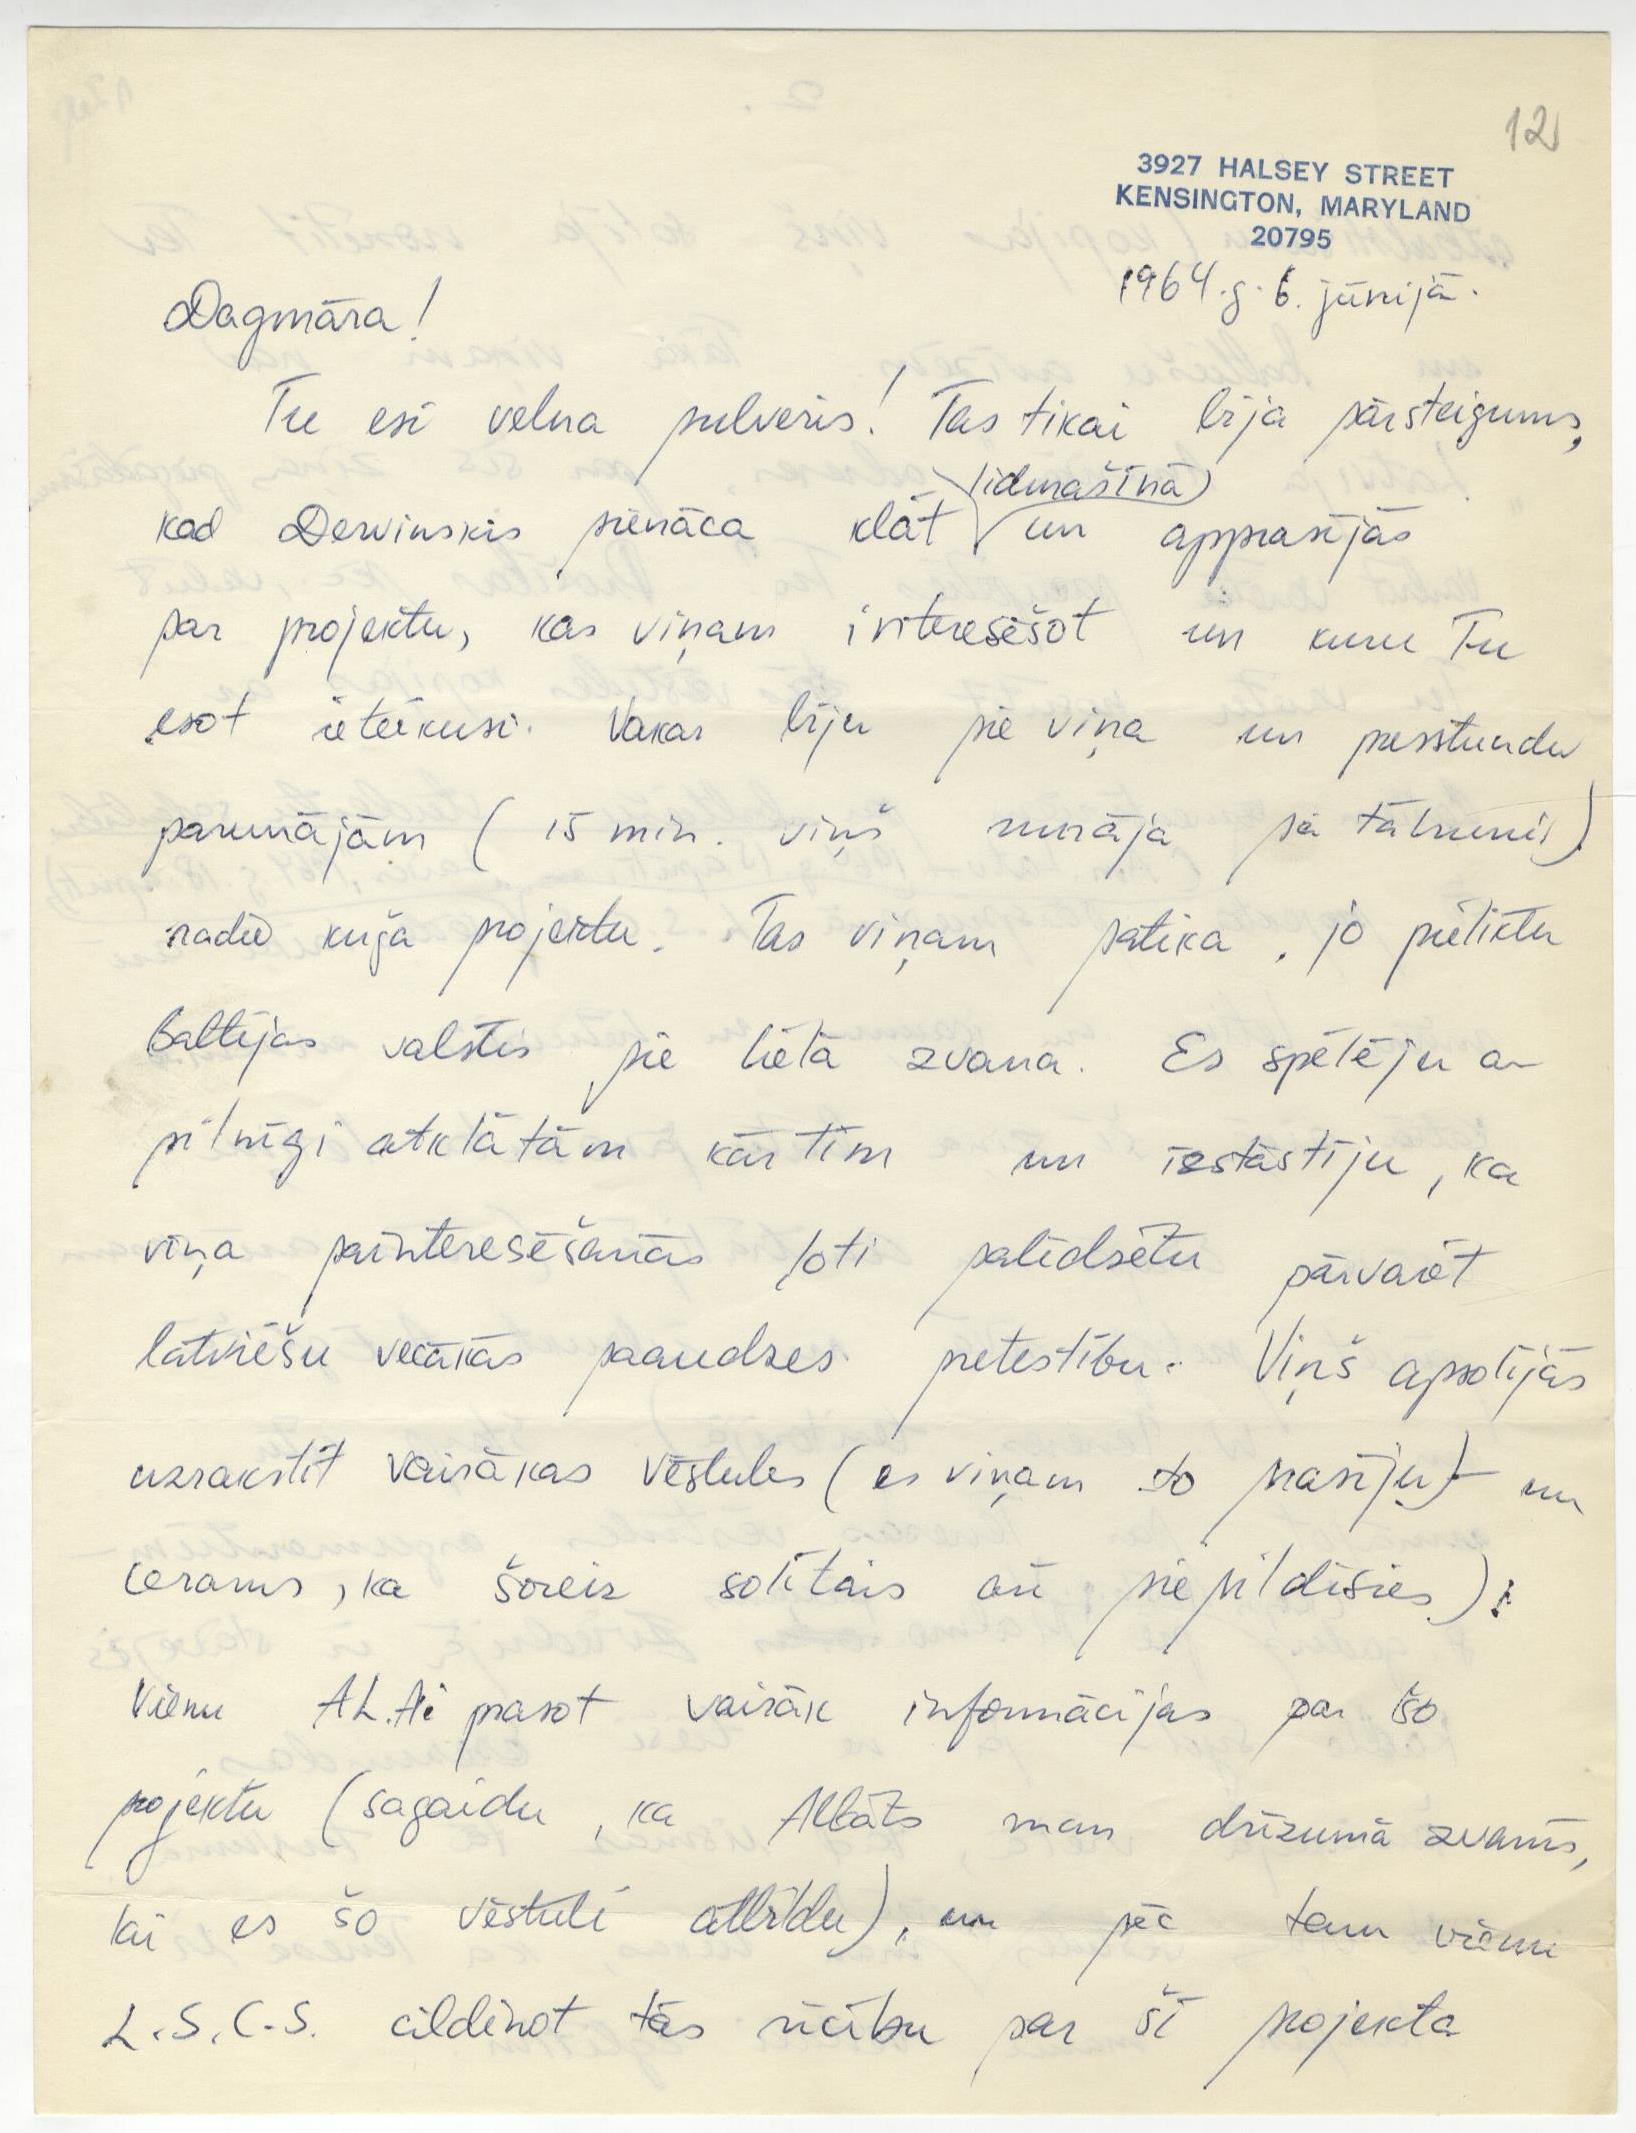 12
3927 HALSEY STREET
KENSINGTON, MARYLAND
20795
1964.g. 6. jūnijā.
Dagmāra!
Tu esi velna pulveris! Tas tikai bija pārsteigums,
(lidmašīnā)
kad Dervinskis pienāca klāt un apprasījās
par projektu, kas viņam interesēšot un kuru Tu
esot ieteikusi. Vakar biju pie viņa un pusstundu
parunājām (15 min. viņš runāja pa tālruni)
radio kuģa projektu. Tas viņam patika, jo pieliktu
Baltijas valstis pie lielā zvana. Es spēlēju ar
pilnīgi atklātām kārtīm un izstāstīju, ka
viņa painteresēšanās ļoti palīdzētu pārvarēt
latviešu vecākās paaudzes pretestību. Viņš apsolījās
uzrakstīt vairākas vēstules (es viņam to prasīju) un
cerams, ka šoreiz solītais arī piepildīsies):
Vienu ALAi prasot vairāk informācijas par šo
projektu (sagaidu, ka Albāts man drīzumā zvanīs,
lai es šo vēstuli atbildu), un pēc tam vienu
L.S.C.S. cildinot tās rīcību par šī projekta